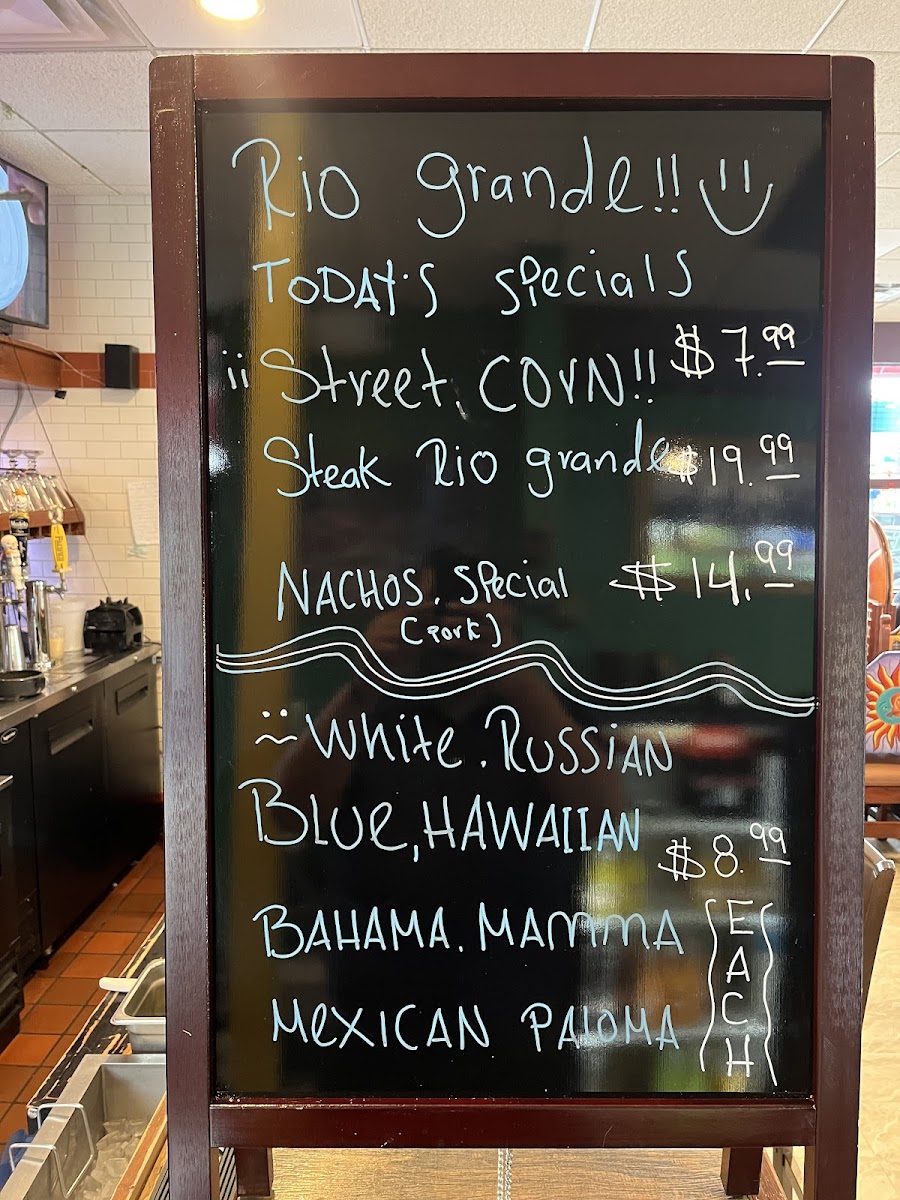 Rio grande!!
TODAY'S Specials
¡¡Street CORN!! $7.99
Steak Rio grande $19.99
NACHOS. Special $14.99
(pork)
White. RUSSIAN
BLUe, HAWAIIAN
$8.99
EACH
BAHAMA. MAMMA
MeXICAN PALOMA